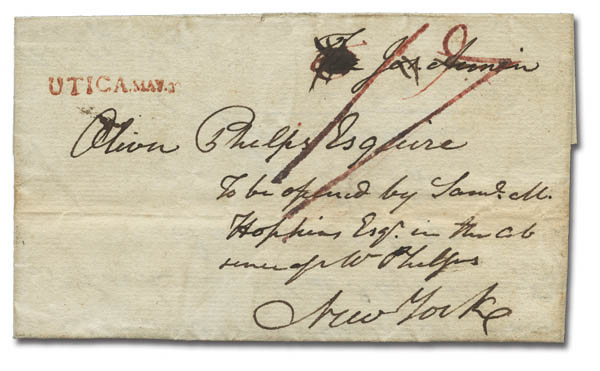 UTICA MAY.
Oliver Phelps Esquire
To be opened by Saml. M.
Hopkins Esqr. in the ab
sence of Mr Phelps
New York